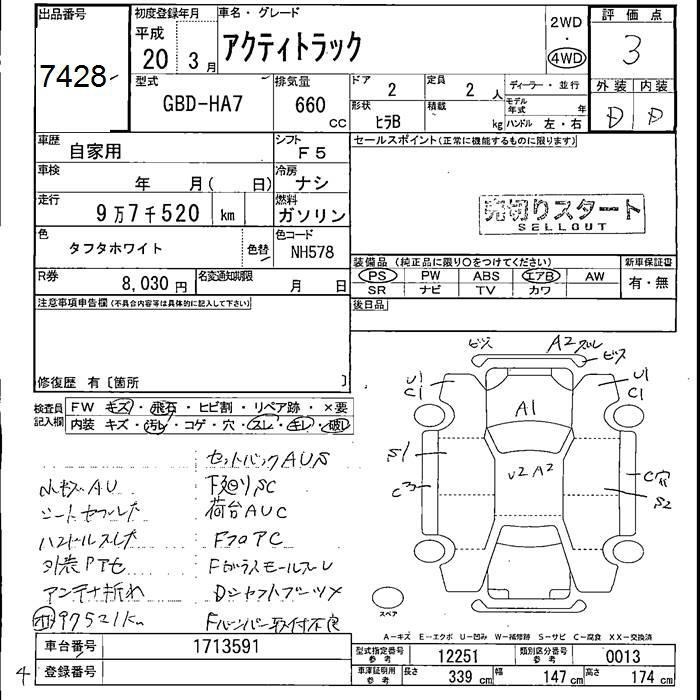 出品番号
7428
初度登録年月
平成
20 3月
車名・グレード
アクティトラック
2WD
・
4WD
評価点
3
外装 内装
D D
型式
GBD-HA7
排気量
660
CC
ドア
2
定員
2 人
ディーラー・並行
形状
ヒラB
積載
kg
モデル年式
年
ハンドル 左・右
車歴
自家用
シフト
F5
セールスポイント(正常に機能するものに限ります)
車検
年 月( 日)
冷房
ナシ
走行
9万7千520 km
燃料
ガソリン
売切りスタート
SELLOUT
色
タフタホワイト
色替
色コード
NH578
装備品(純正品に限り○をつけてください)
新車保証書
PS PW ABS エアB AW
SR ナビ TV カワ
有・無
R券
8,030 円
名変通知期限
月 日
後日品
注意事項申告欄(不具合内容等は具体的に記入して下さい)
修復歴 有〔箇所 〕
検査員
記入欄
FW キズ・飛石・ヒビ割・リペア跡・×要
内装 キズ・汚れ・コゲ・穴・スレ・キレ・破れ
ビス
A2スレ
ビス
U1
C1
U1
C1
A1
S1
C3
U2A2
C穴
S2
スペア
セットバックAUS
下廻りSC
シートセフルグ
荷台AUC
ハンドルスレグ
FフロアC
外装Pアセ
FガラスモールズレU
アンテナ折れ
DシャフトブーツX
97521km
Fバンパー取付不良
A-キズ E-エクボ U-凹み W-補修跡 S-サビ C-腐食 XX-交換済
車台番号
1713591
登録番号
4
型式指定番号
参考
12251
類別区分番号
参考
0013
車庫証明用
参考
長さ 339 cm 幅 147 cm 高さ 174 cm